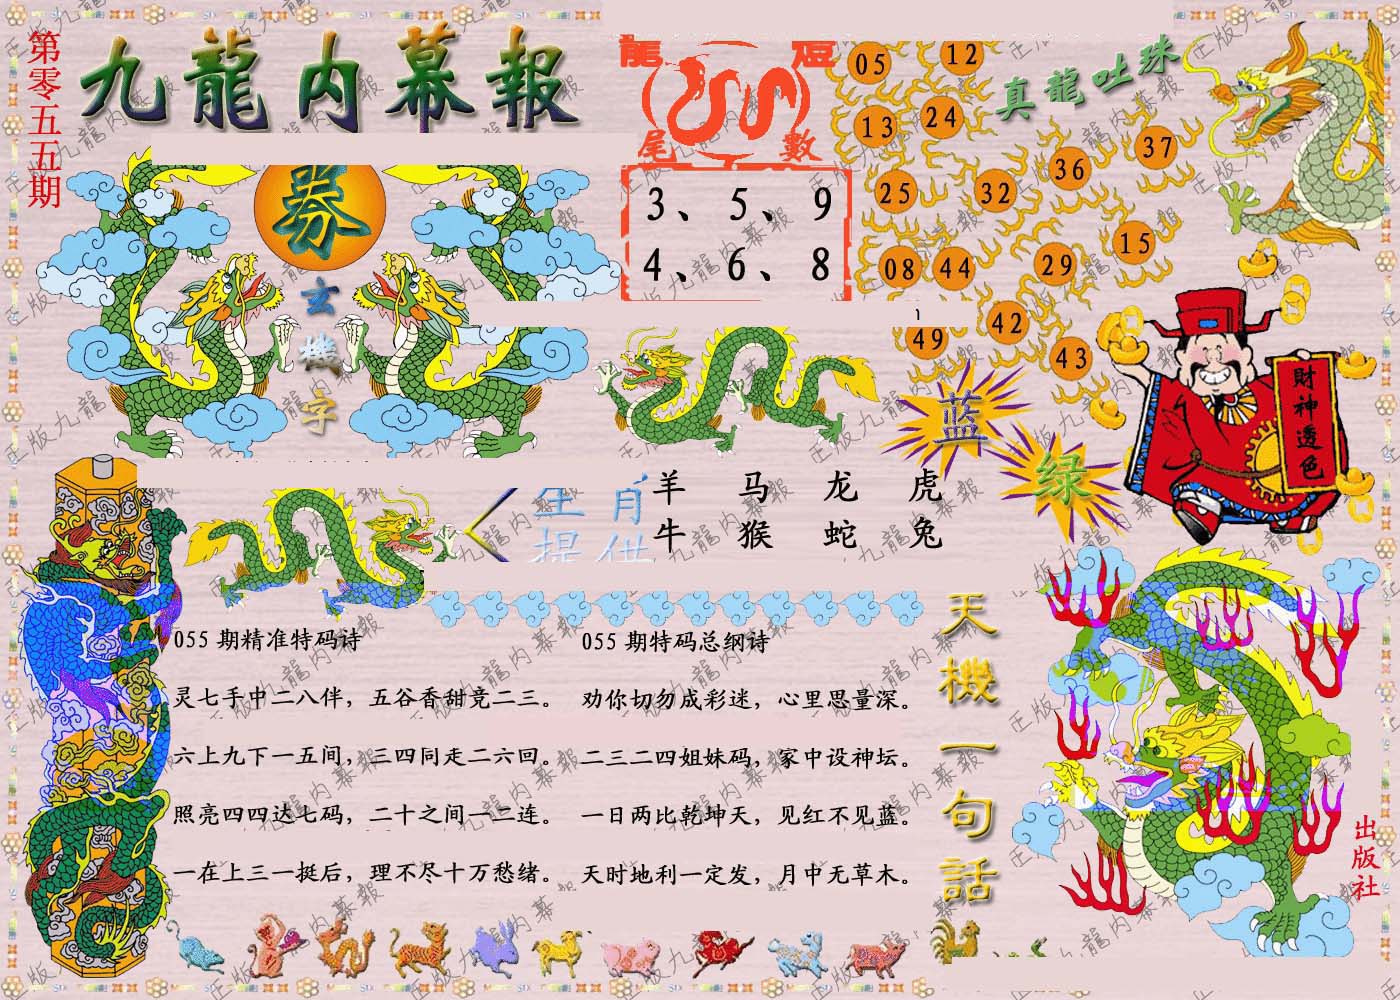 第零五五期
九龍内幕報
券
玄機字
龍燈
尾數
3、5、9
4、6、8
真龍吐珠
05 12
13 24
25 32 36 37
08 44 29 15
49 42 43
蓝
绿
財神透色
生肖
提供
羊 马 龙 虎
牛 猴 蛇 兔
055 期精准特码诗
灵七手中二八伴，五谷香甜竞二三。
六上九下一五间，三四同走二六回。
照亮四四达七码，二十之间一二连。
一在上三一挺后，理不尽十万愁绪。
055 期特码总纲诗
劝你切勿成彩迷，心里思量深。
二三二四姐妹码，家中设神坛。
一日两比乾坤天，见红不见蓝。
天时地利一定发，月中无草木。
天機一句話
出版社
正版九龍内幕報